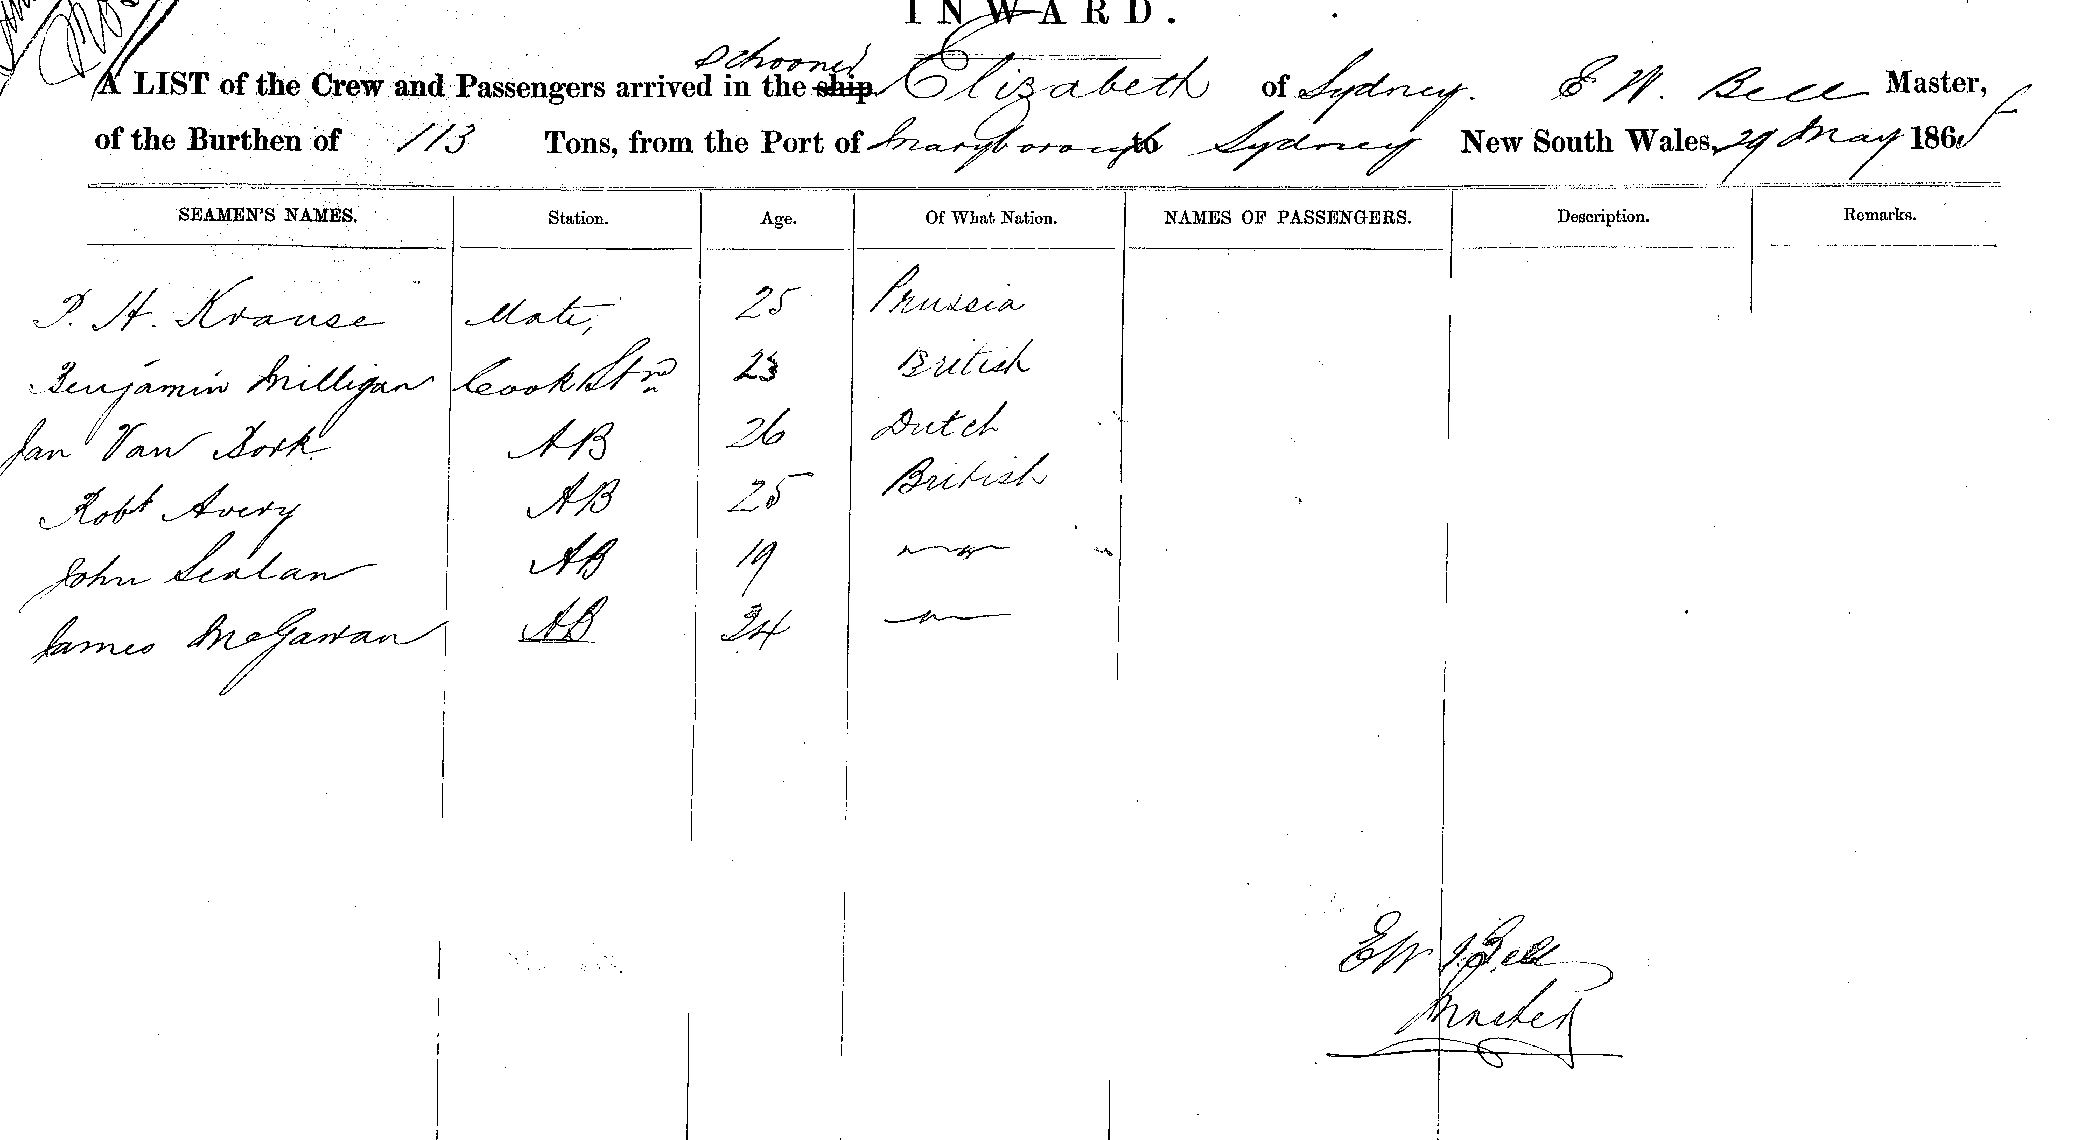 INWARD.
schooner
A LIST of the Crew and Passengers arrived in the ship Elizabeth of Sydney. E W. Bell Master,
of the Burthen of 113 Tons, from the Port of Maryborough to Sydney New South Wales, 29 May 1865
SEAMEN'S NAMES. Station. Age. Of What Nation. NAMES OF PASSENGERS. Description. Remarks.
P. H. Krause Mate, 25 Prussia
Benjamin Milligan Cook & Strd 23 British
Jan Van Bork AB 26 Dutch
Robt Avery AB 25 British
John AB 19
James McGawan AB 24
E W Bell
Master